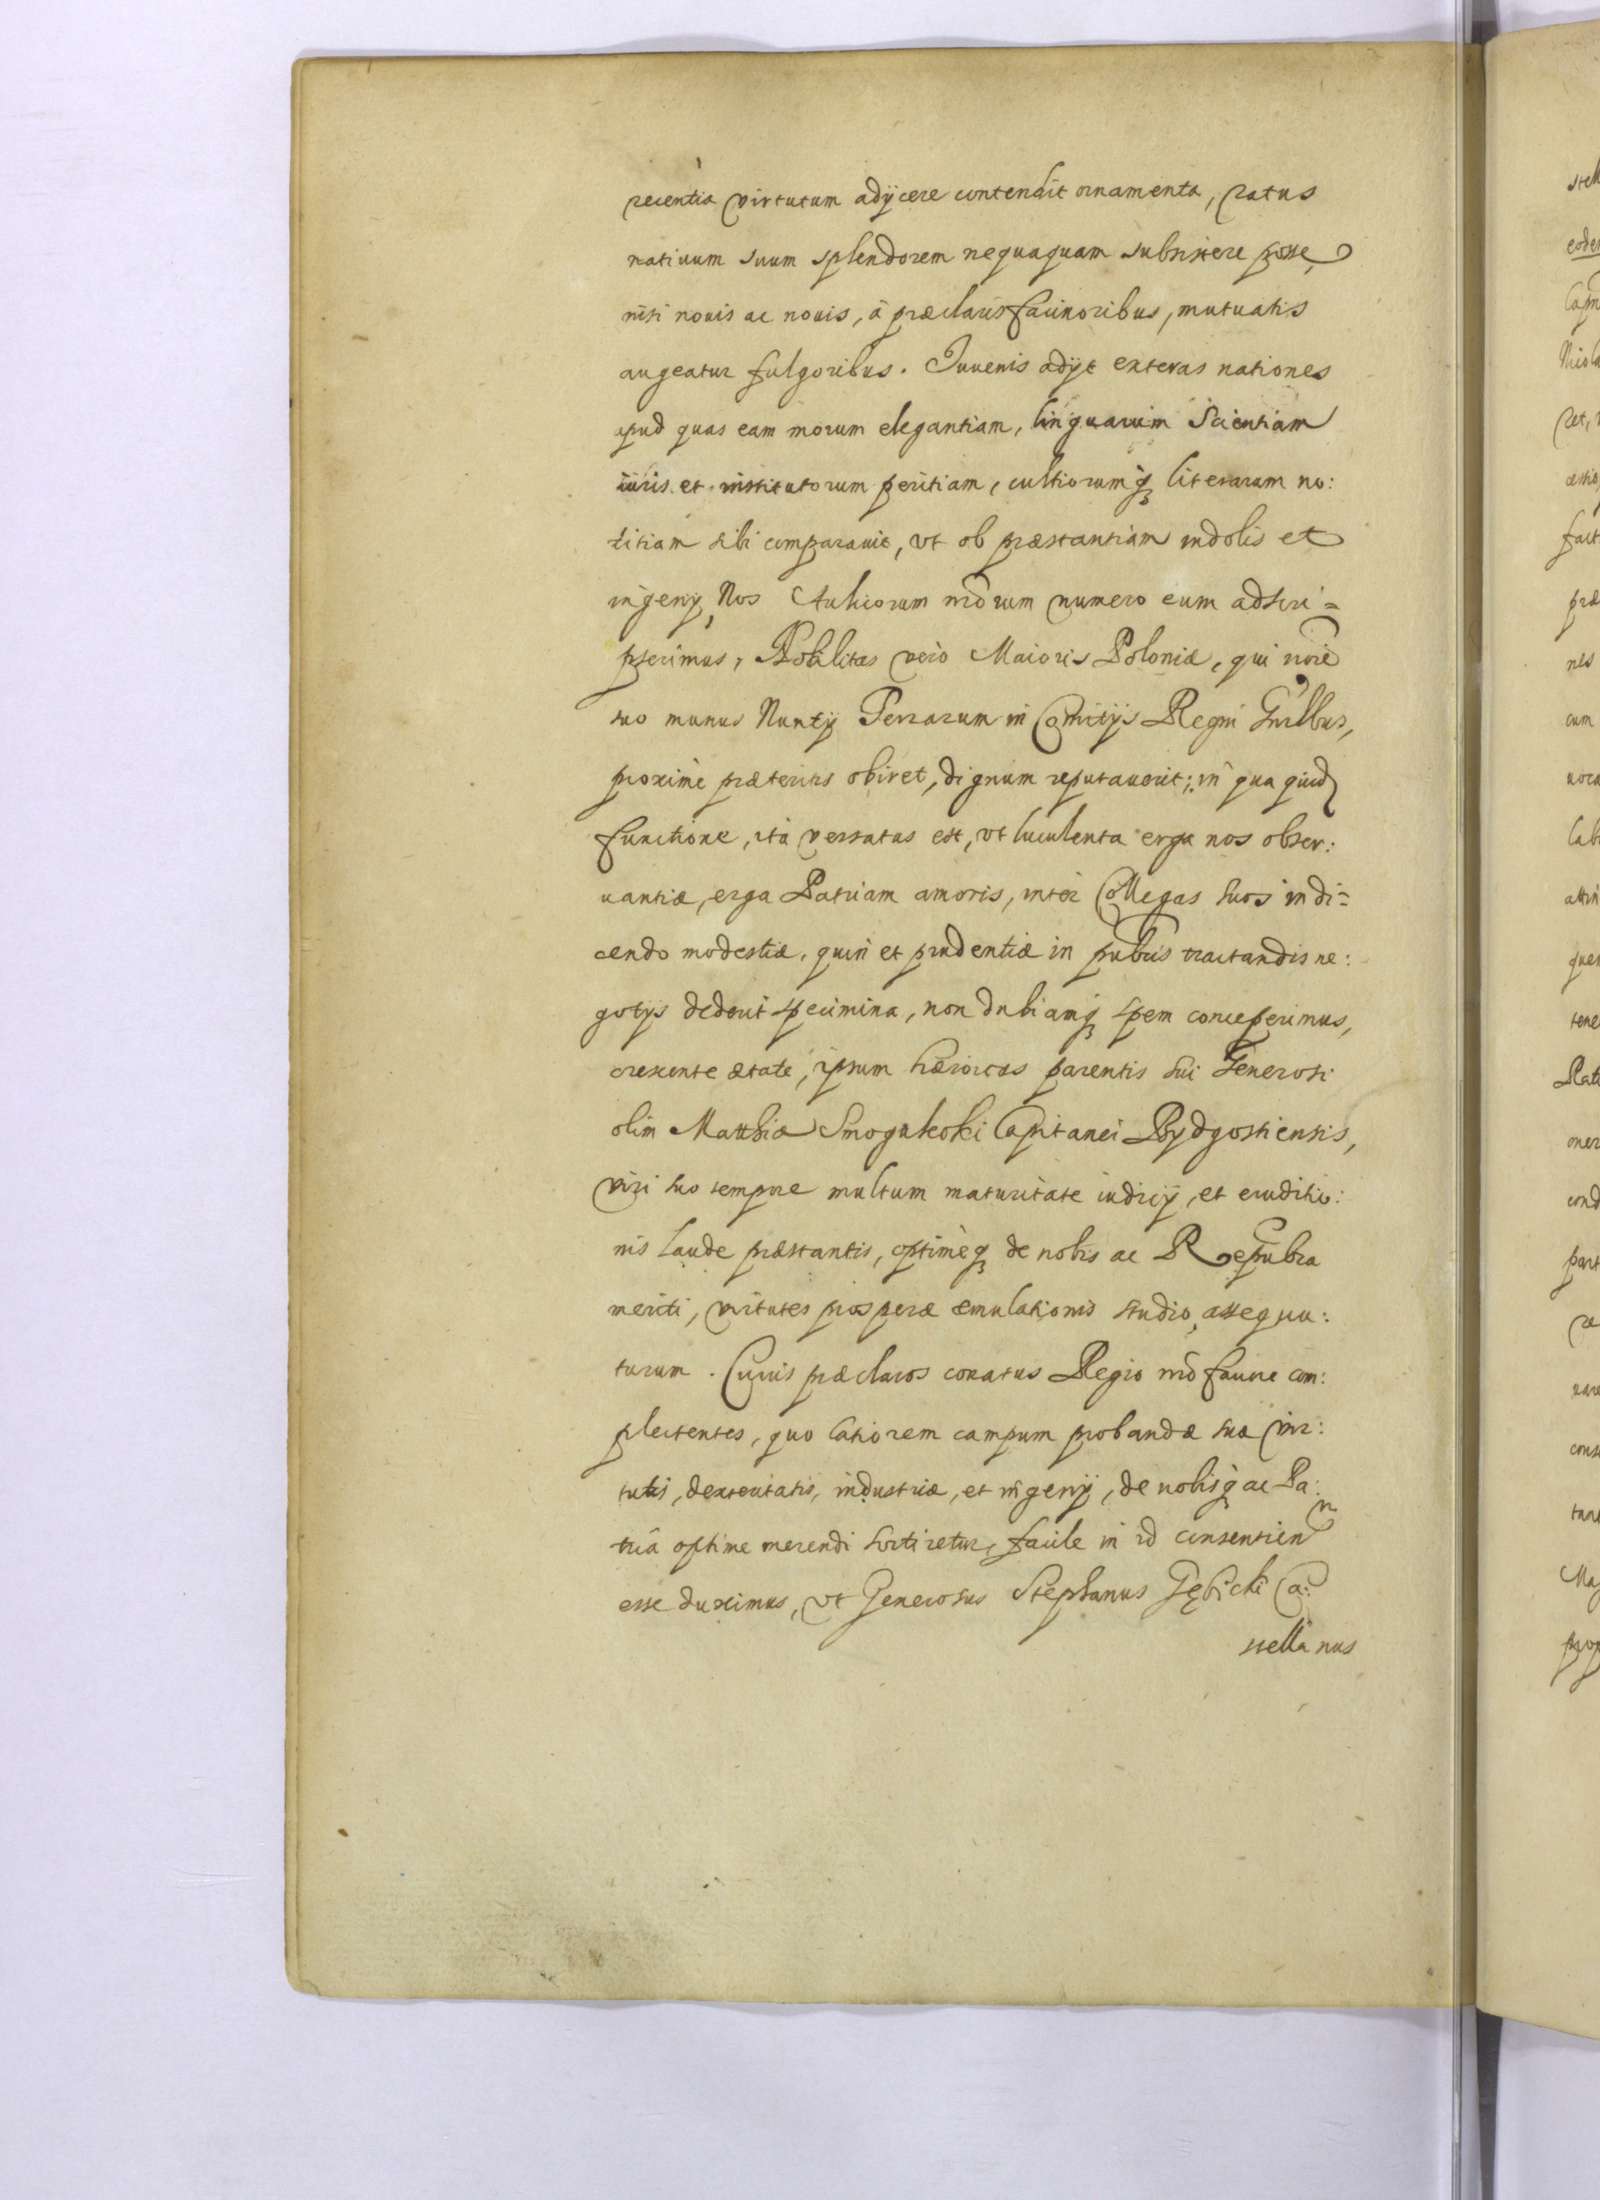 recentia virtutum adÿcere contendit ornamenta, ratus
natiuum suum splendorem nequaquam subsistere posse,
nisi nouis ac nouis, à præclaris facinoribus, mutuatis
augeatur fulgoribus. Iuuenis adÿt exteras nationes
apud quas eam morum elegantiam, linguarum Scientiam
iuris et institutorum peritiam, cultiorumq₃ literarum no:
titiam sibi comparauit, vt ob præstantiam indolis et
ingenÿ, Nos Aulicorum nrorum numero eum adscri=
pserimus, Nobilitas vero Maioris Poloniæ, qui noie
suo munus Nuntÿ Terrarum in Comitÿs Regni Gnrlbus,
proximè præteritis obiret, dignum reputauerit; in qua quid
functione, ità versatus est, vt luculenta erga nos obser:
uantiæ, erga Patriam amoris, inter Collegas suos in di=
cendo modestiæ, quin et prudentiæ in publis tractandis ne:
gotÿs dederit specimina, non dubiamq₃ spem conceperimus,
crescente ætate, ipsum hæroicas parentis sui Generosi
olim Matthiæ Smogulecki Capitanei Bydgostiensis,
viri suo tempore multum maturitate iudicÿ, et eruditio:
nis laude præstantis, optimèq₃ de nobis ac Republica
meriti, virtutes prosperæ æmulationis studio, assequu:
turum. Cuius præclaros conatus Regio nro fauore com:
plectentes, quo latiorem campum probandæ suæ vir:
tutis, dexteritatis, industriæ, et ingenÿ, de nobisq ac Pa:
triâ optime merendi sortiretur, facile in id consentien
esse duximus, vt Generosus Stephanus Gębicki Ca:
stellanus